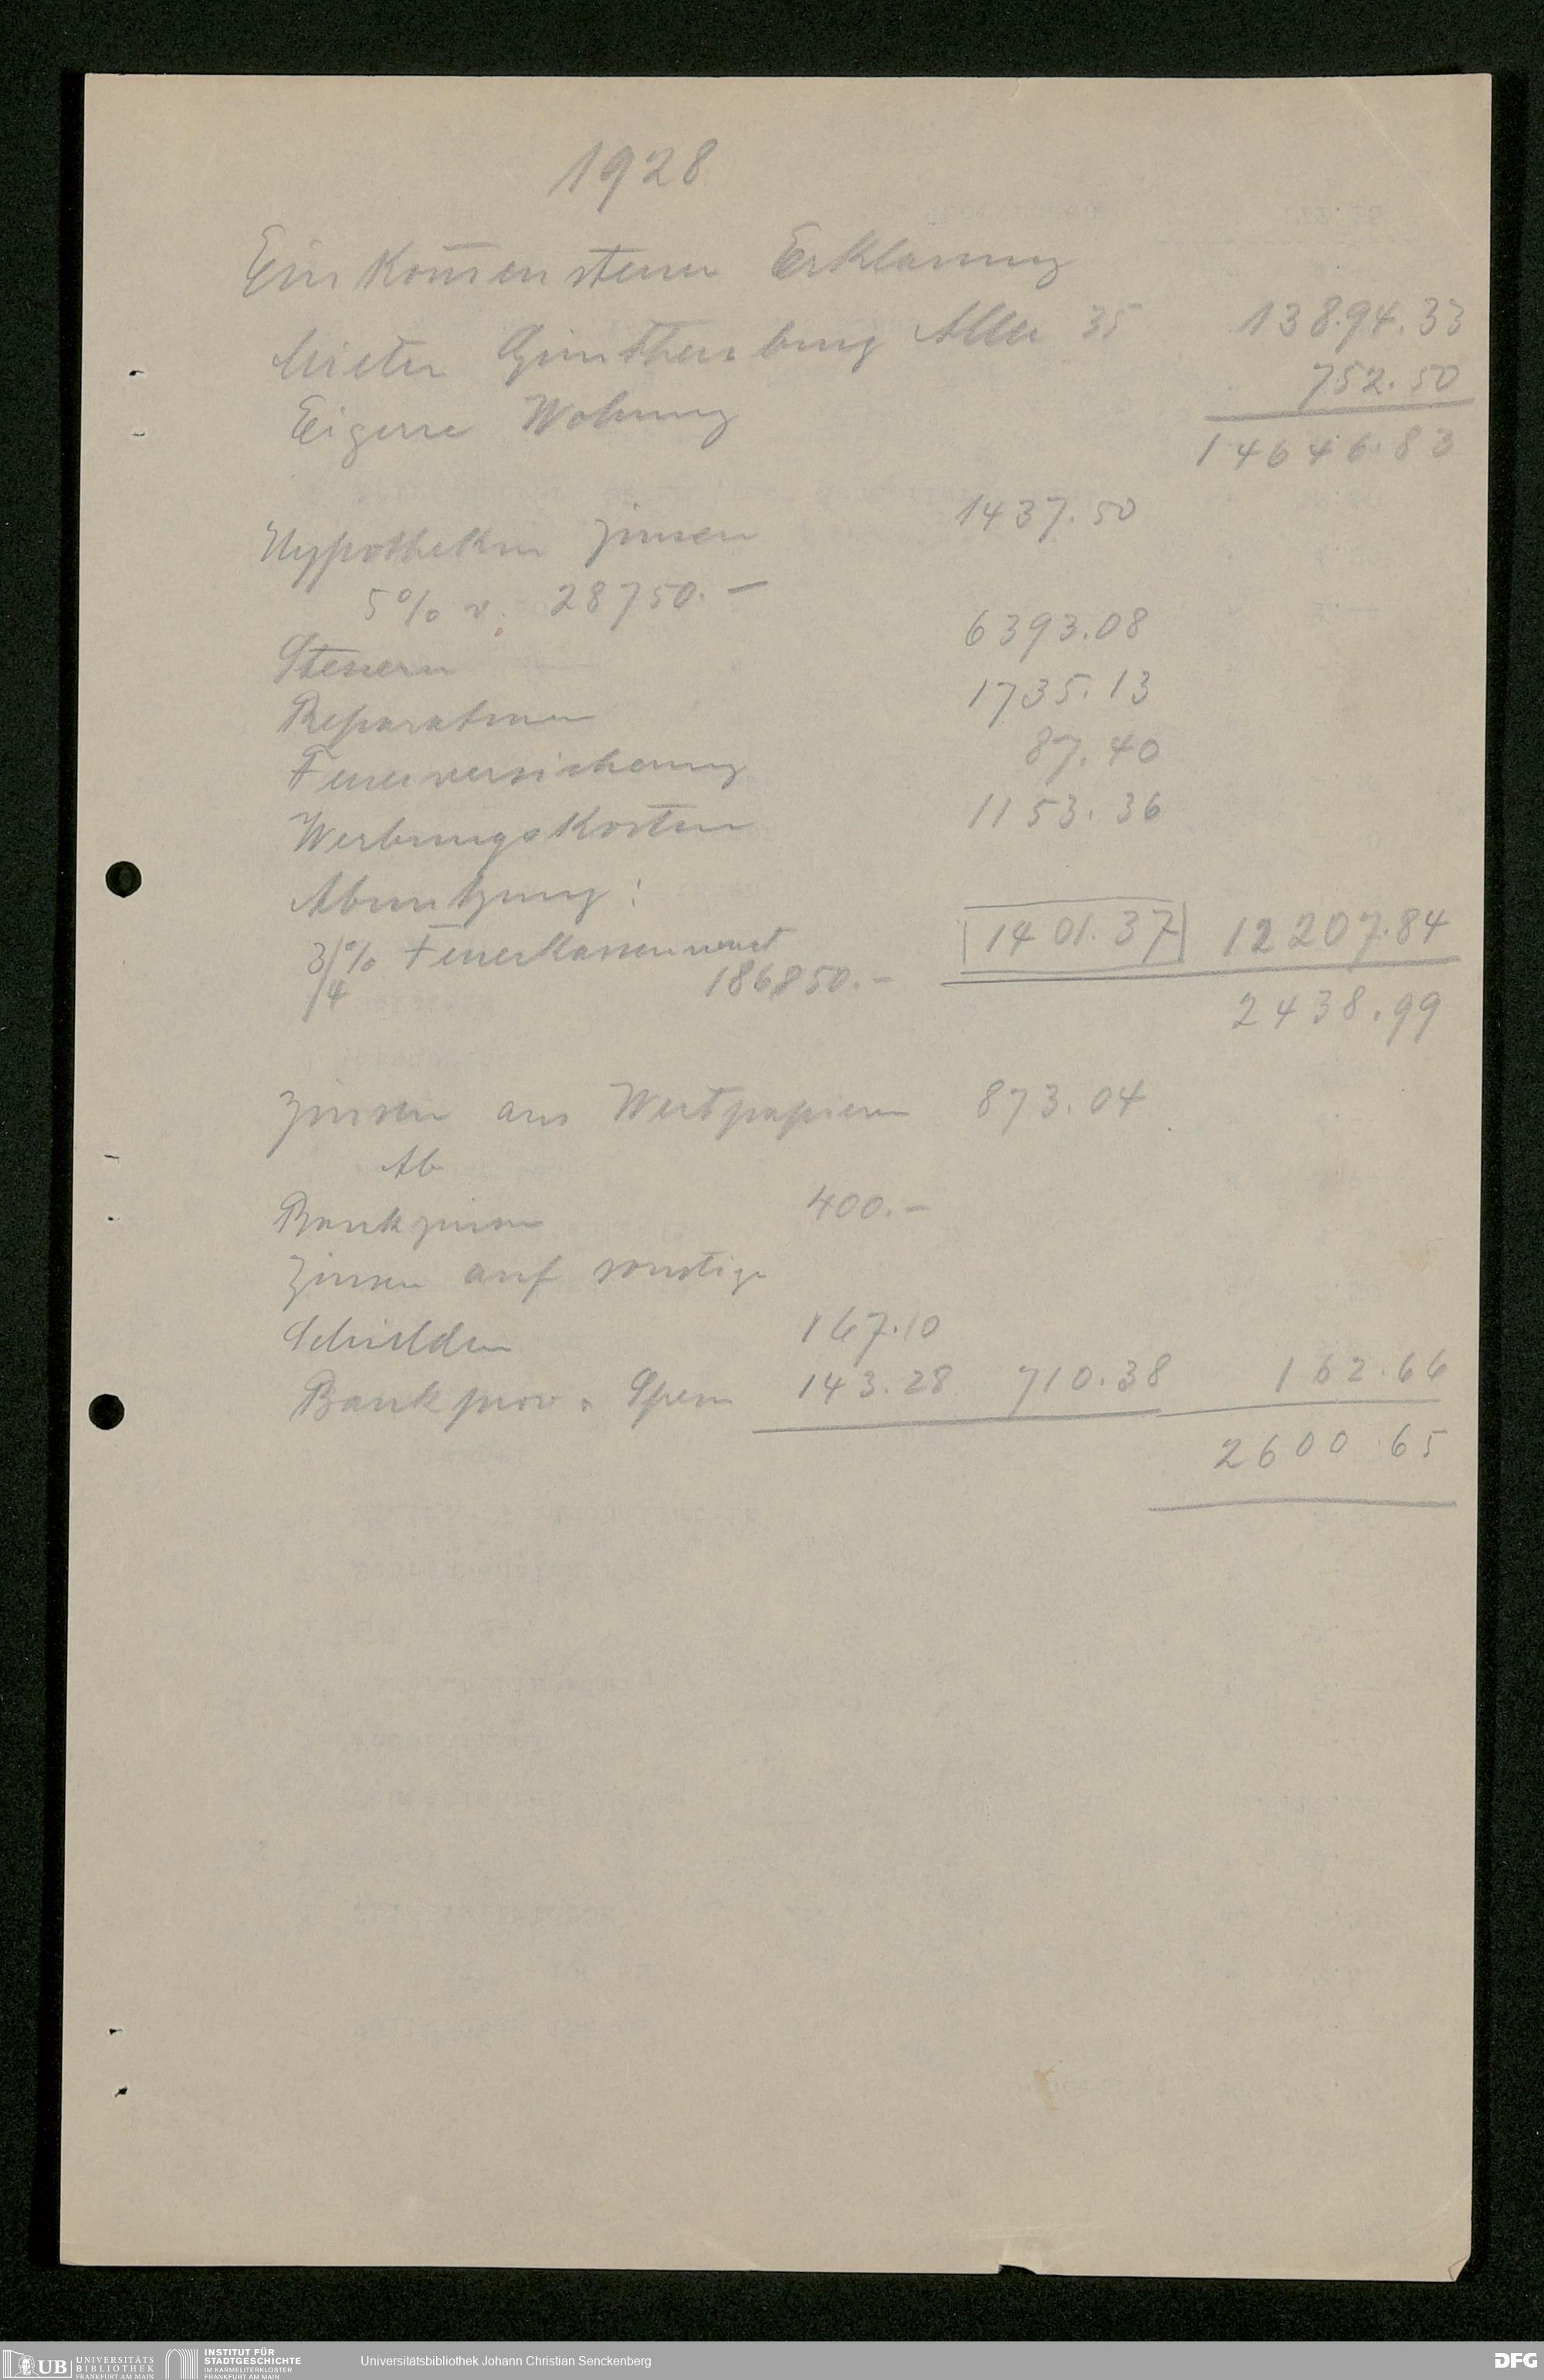 1928
Einkom̅ensteuer Erklärung
Mieten Günthersburg Allee 35 13894.33
Eigene Wohnung 752.50
14646.83
Hypotheken Zinsen 1437.50
5% v. 28750.–
Steuern 6393.08
Reparaturen 1735.13
Feuerversicherung 87.40
Werbungskosten 1153.36
Abnutzung:
3/4% Feuerkassenwert 1401.37 12207.84
186850.–
2438.99
Zinsen aus Wertpapieren 873.04
Ab
Bankzinsen 400.–
Zinsen auf sonstige
Schulden 167.10
Bankprov. Spesen 143.28 710.38 162.66
2600.65
UB UNIVERSITÄTS BIBLIOTHEK FRANKFURT AM MAIN
INSTITUT FÜR STADTGESCHICHTE IM KARMELITERKLOSTER FRANKFURT AM MAIN
Universitätsbibliothek Johann Christian Senckenberg
DFG